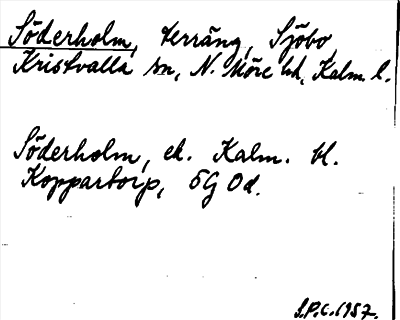 Söderholm, terräng, Sjöbo,
Kristvalla sn, N. Möre hd, Kalm. l.
Söderholm, ek. Kalm. bl.
Koppartorp, 5G 0d.
S.P.C. 1957.